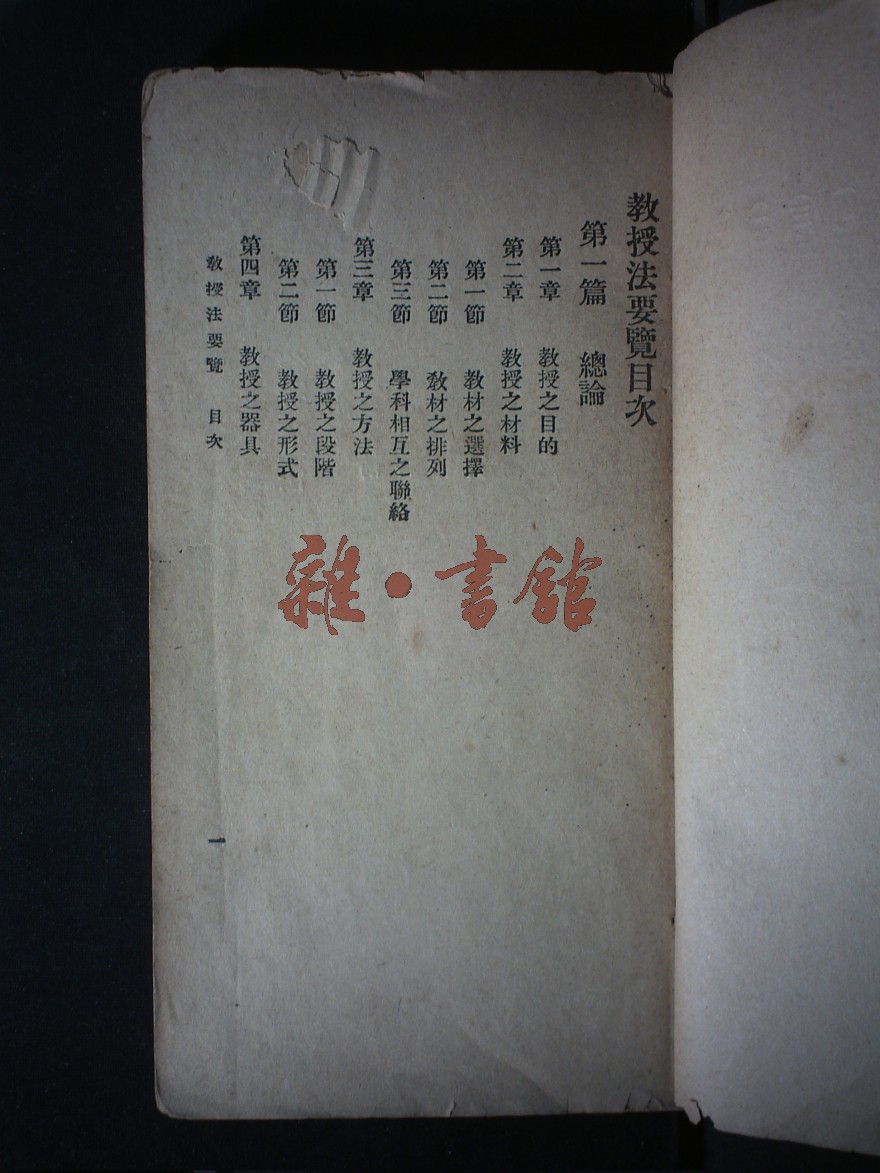 教授法要覽目次
第一篇 總論
第一章 教授之目的
第二章 教授之材料
第一節 教材之選擇
第二節 教材之排列
第三節 學科相互之聯絡
第三章 教授之方法
第一節 教授之段階
第二節 教授之形式
第四章 教授之器具
教授法要覽 目次
一
雜·書館